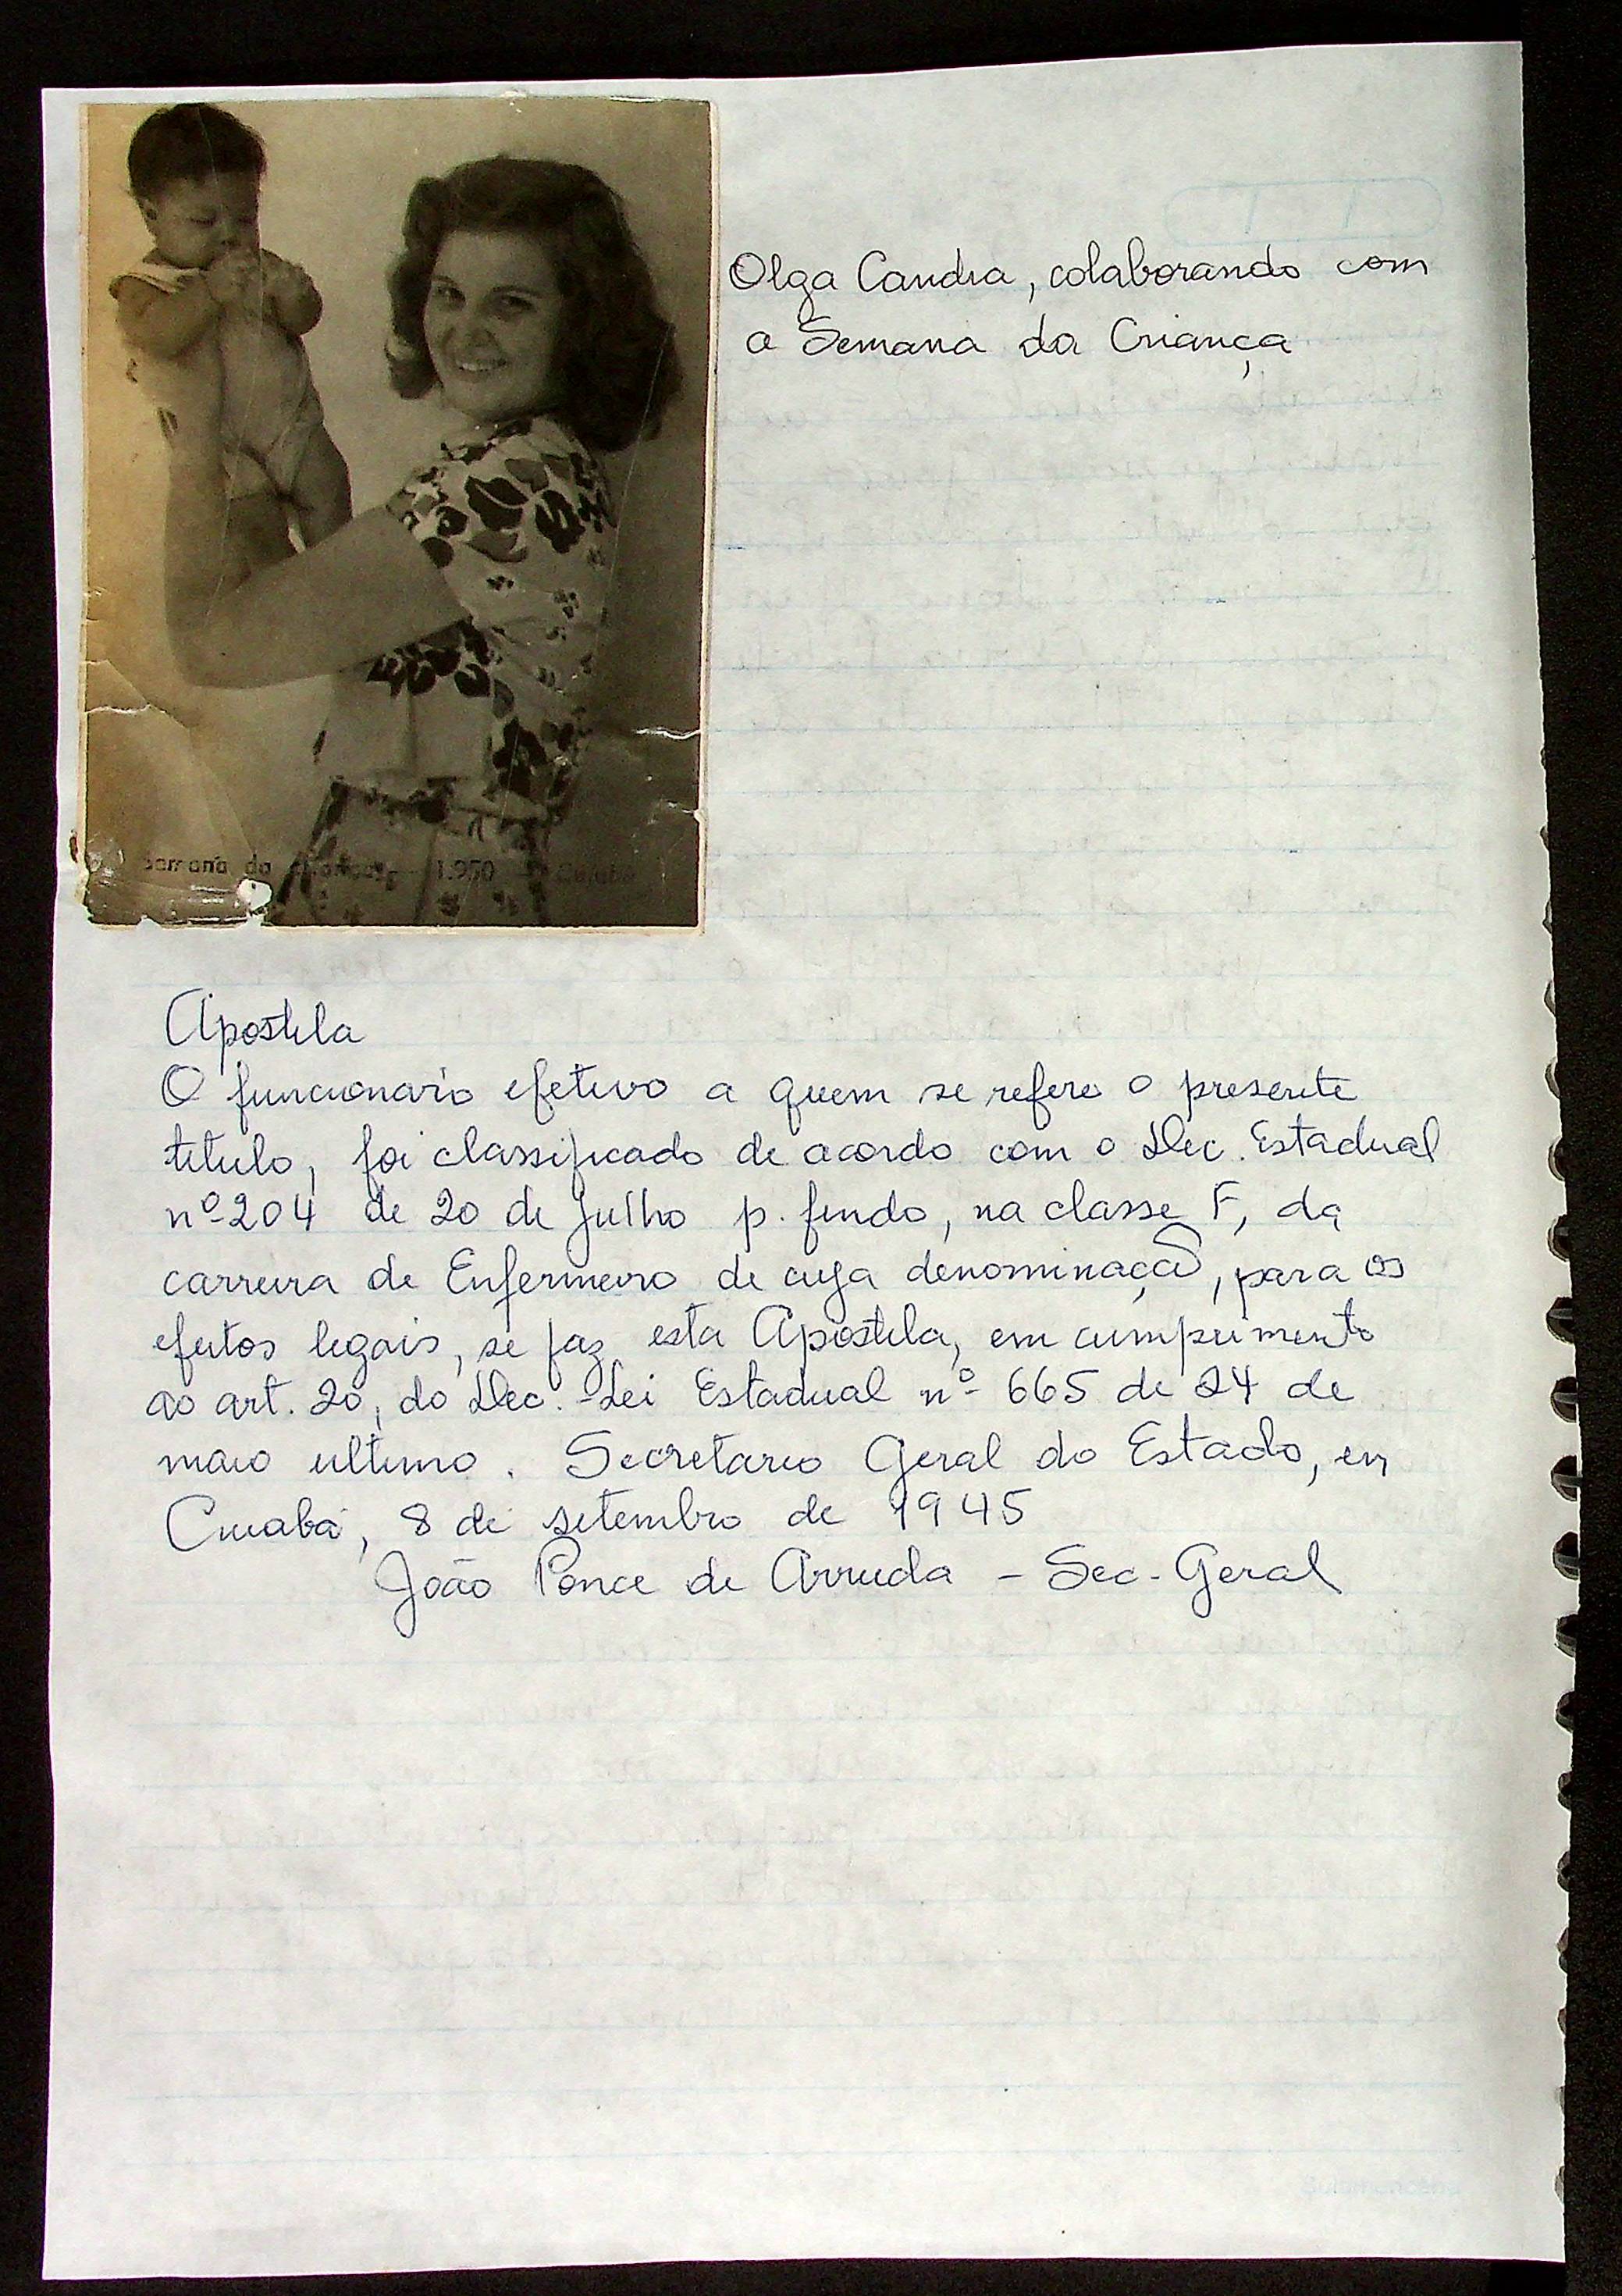 Olga Candia, colaborando com
a Semana da Criança
Semana da Criança 1.950 Cuiabá
Apostila
O funcionario efetivo a quem se refere o presente
titulo, foi classificado de acordo com o Dec. Estadual
nº 204 de 20 de julho p. findo, na classe F, da
carreira de Enfermeiro de cuja denominação, para os
efeitos legais, se faz esta Apostila, em cumprimento
ao art. 20, do Dec.-Lei Estadual nº 665 de 24 de
maio ultimo. Secretario Geral do Estado, em
Cuiabá, 8 de setembro de 1945
João Ponce de Arruda - Sec. Geral